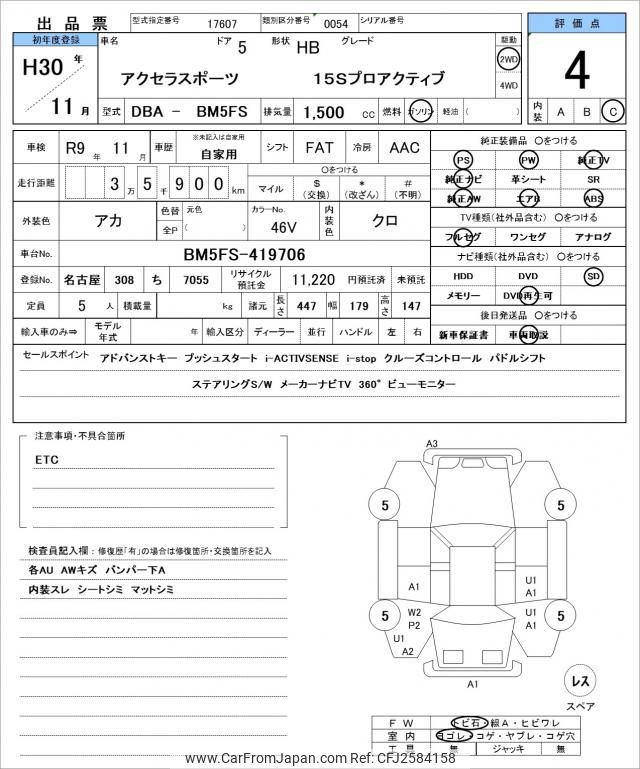 出品票 型式指定番号 17607 類別区分番号 0054 シリアル番号
評価点
初年度登録 車名 ドア 5 形状 HB グレード 駆動
H30 年 アクセラスポーツ 15Sプロアクティブ 2WD 4
4WD
11 月 型式 DBA － BM5FS 排気量 1,500 cc 燃料 ガソリン 軽油 ( ) 内装 A B C
車検 R9 年 11 月 車歴 ※未記入は自家用 自家用 シフト FAT 冷房 AAC 純正装備品 〇をつける
PS PW 純正TV
走行距離 3 万 5 千 9 0 0 km 〇をつける
マイル $ (交換) * (改ざん) # (不明)
純正ナビ 革シート SR
純正AW エアB ABS
外装色 アカ 色替 元色 全P ( ) カラーNo. 46V 内装色 クロ TV種類(社外品含む) 〇をつける
フルセグ ワンセグ アナログ
車台No. BM5FS-419706 ナビ種類(社外品含む) 〇をつける
登録No. 名古屋 308 ち 7055 リサイクル預託金 11,220 円預託済 未預託 HDD DVD SD
定員 5 人 積載量 kg 諸元 長さ 447 幅 179 高さ 147 メモリー DVD再生可
後日発送品 〇をつける
輸入車のみ⇒ モデル年式 年 輸入区分 ディーラー 並行 ハンドル 左 右 新車保証書 車両取説
セールスポイント アドバンストキー プッシュスタート i-ACTIVSENSE i-stop クルーズコントロール パドルシフト
ステアリングS/W メーカーナビTV 360°ビューモニター
注意事項・不具合箇所
ETC
検査員記入欄：修復歴「有」の場合は修復箇所・交換箇所を記入
各AU AWキズ バンパー下A
内装スレ シートシミ マットシミ
A3
5 5
A1 U1
A1
5 W2 U1 5
P2 A1
U1
A2
A1
レス
スペア
FW トビ石・線A・ヒビワレ
室内 ヨゴレ・コゲ・ヤブレ・コゲ穴
工具 無 ジャッキ 無
www.CarFromJapan.com Ref: CFJ2584158